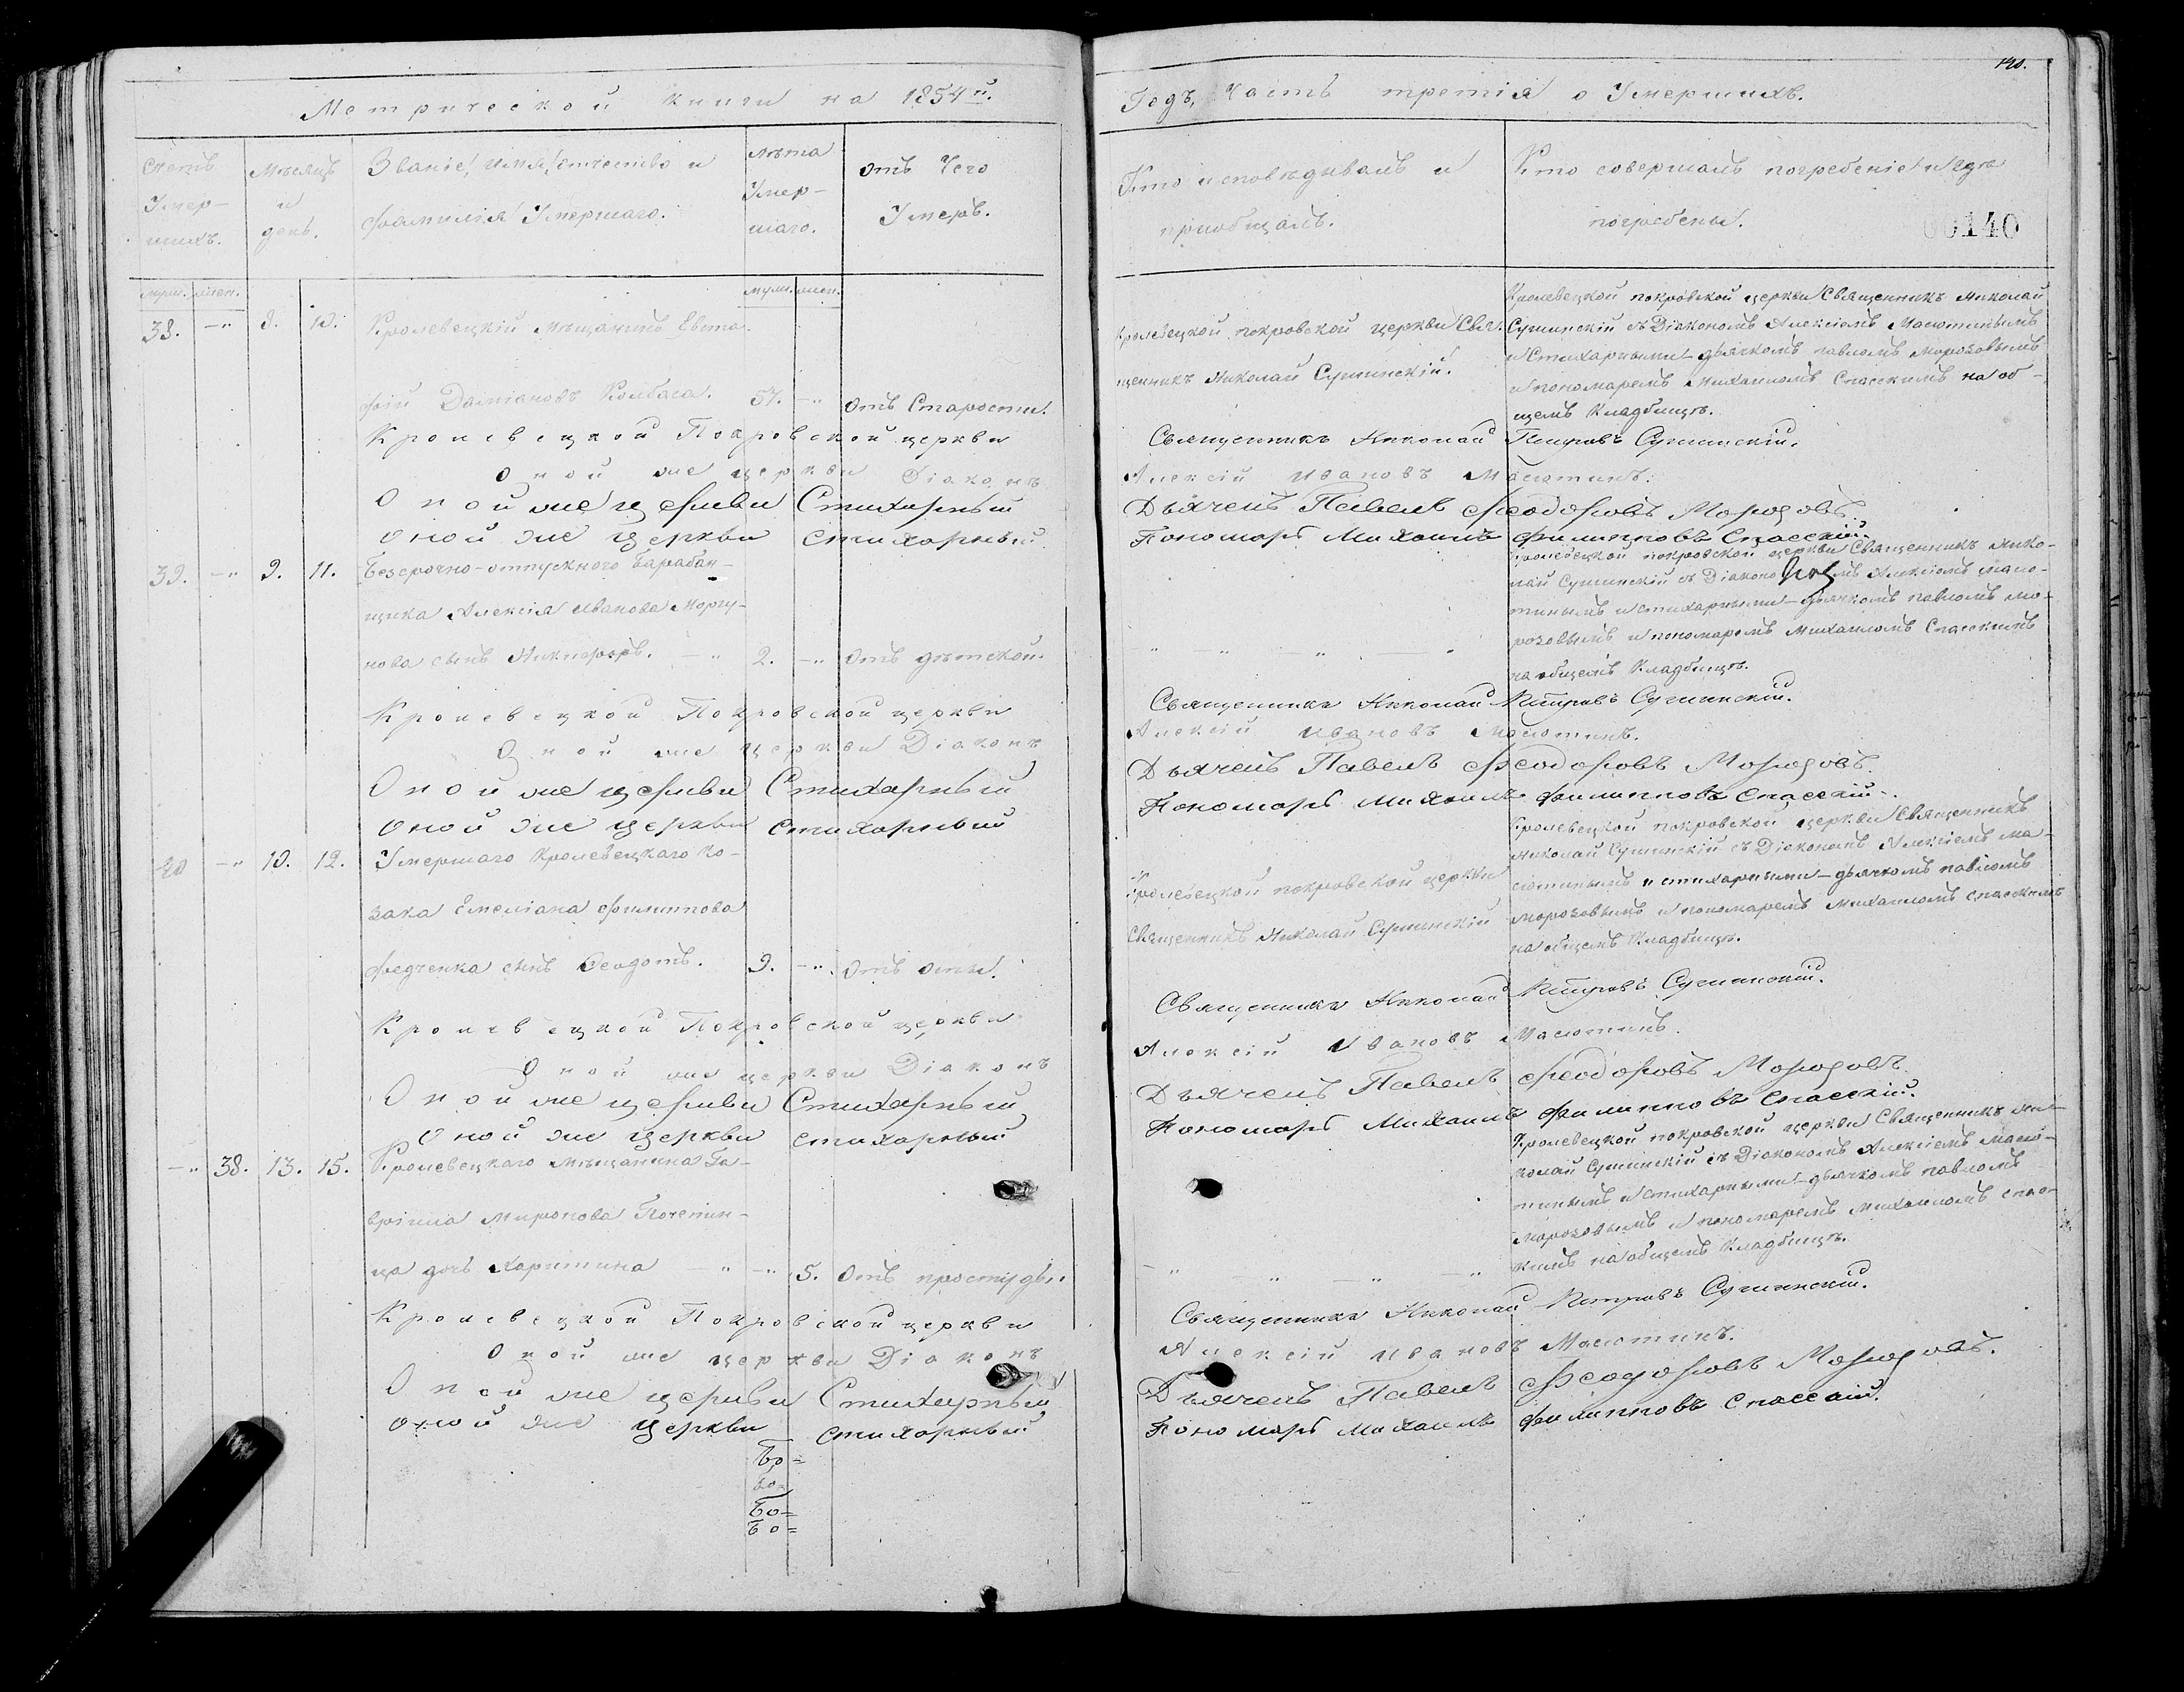 Метрической книги на 1854й.
Счетъ
Умер-
шихъ.
Мѣсяцъ
и
день.
Званіе, имя, отчество и
фамилія Умершаго.
лѣта
Умер-
шаго.
отъ Чего
Умеръ.
муж. жен.
муж. жен.
38. —" 8. 10. Кролевецкій мѣщанинъ Евста-
фій Даміановъ Колбаса. 57. —" отъ Старости.
Кролевецкой Покровской церкви
Оной же церкви Діаконъ
Оной же церкви Стихарный
Оной же церкви стихарный
39. —" 9. 11. Безсрочно-отпускного Барабан-
щика Алексія Иванова Моргу-
нова сынъ Никифоръ. —" 2. —" Отъ дѣтской.
Кролевецкой Покровской церкви
Оной же церкви Діаконъ
Оной же церкви Стихарный
Оной же церкви стихарный
40 —" 10. 12. Умершаго Кролевецкаго ко-
зака Емеліана Филиппова
Федченка сынъ Феодотъ. 9. —" Отъ оспы.
Кролевецкой Покровской церкви
Оной же церкви Діаконъ
Оной же церкви Стихарный
Оной же церкви стихарный
—" 38. 13. 15. Кролевецкаго мѣщанина Га-
вріила Миронова
ца дочь Харитина —" —" 5. Отъ простуды
Кролевецкой Покровской церкви
Оной же церкви Діаконъ
Оной же церкви Стихарный
Оной же церкви стихарный
Бо=
Бо=
Бо=
Бо=
140.
Годъ, Часть третія о Умершихъ.
Кто исповѣдывалъ и
приобщалъ.
Кто совершалъ погребеніе и гдѣ
погребены.
00140
Кролевецкой покровской церкви Свя-
щенникъ Николай Сушинскій.
Кролевецкой покровской церкви Священникъ Николай
Сушинскій съ Діакономъ Алексіемъ Масютинымъ
и Стихарными — дьячкомъ павломъ Морозовымъ
и пономаремъ Михаиломъ Спасскимъ на об-
щемъ Кладбищѣ.
Священникъ Николай Петровъ Сушинскій.
Алексій Ивановъ Масютинъ.
Дьячекъ Павелъ Феодоровъ Морозовъ.
Пономарь Михаилъ Филипповъ Спасскій.
Кролевецкой покровской церкви Священникъ Нико-
лай Сушинскій съ Діакономъ Алексіемъ Масю-
тинымъ и стихарными — дьячкомъ павломъ Мо-
розовымъ и пономаремъ Михаиломъ Спасскимъ
на общемъ Кладбищѣ.
Священникъ Николай Петровъ Сушинскій.
Алексій Ивановъ Масютинъ.
Дьячекъ Павелъ Феодоровъ Морозовъ.
Пономарь Михаилъ Филипповъ Спасскій.
Кролевецкой покровской церкви
Священникъ Николай Сушинскій
Кролевецкой покровской церкви Священникъ
Николай Сушинскій съ Діакономъ Алексіемъ Ма-
сютинымъ и стихарными — дьячкомъ павломъ
Морозовымъ и пономаремъ Михаиломъ Спасскимъ
на общемъ Кладбищѣ.
Священникъ Николай Петровъ Сушинскій.
Алексій Ивановъ Масютинъ.
Дьячекъ Павелъ Феодоровъ Морозовъ.
Пономарь Михаилъ Филипповъ Спасскій.
Кролевецкой покровской церкви Священникъ Ни-
колай Сушинскій съ Діакономъ Алексіемъ Масю-
тинымъ и стихарными — дьячкомъ павломъ
Морозовымъ и пономаремъ Михаиломъ Спас-
кимъ на общемъ Кладбищѣ.
Священникъ Николай Петровъ Сушинскій.
Алексій Ивановъ Масютинъ.
Дьячекъ Павелъ Феодоровъ Морозовъ.
Пономарь Михаилъ Филипповъ Спасскій.